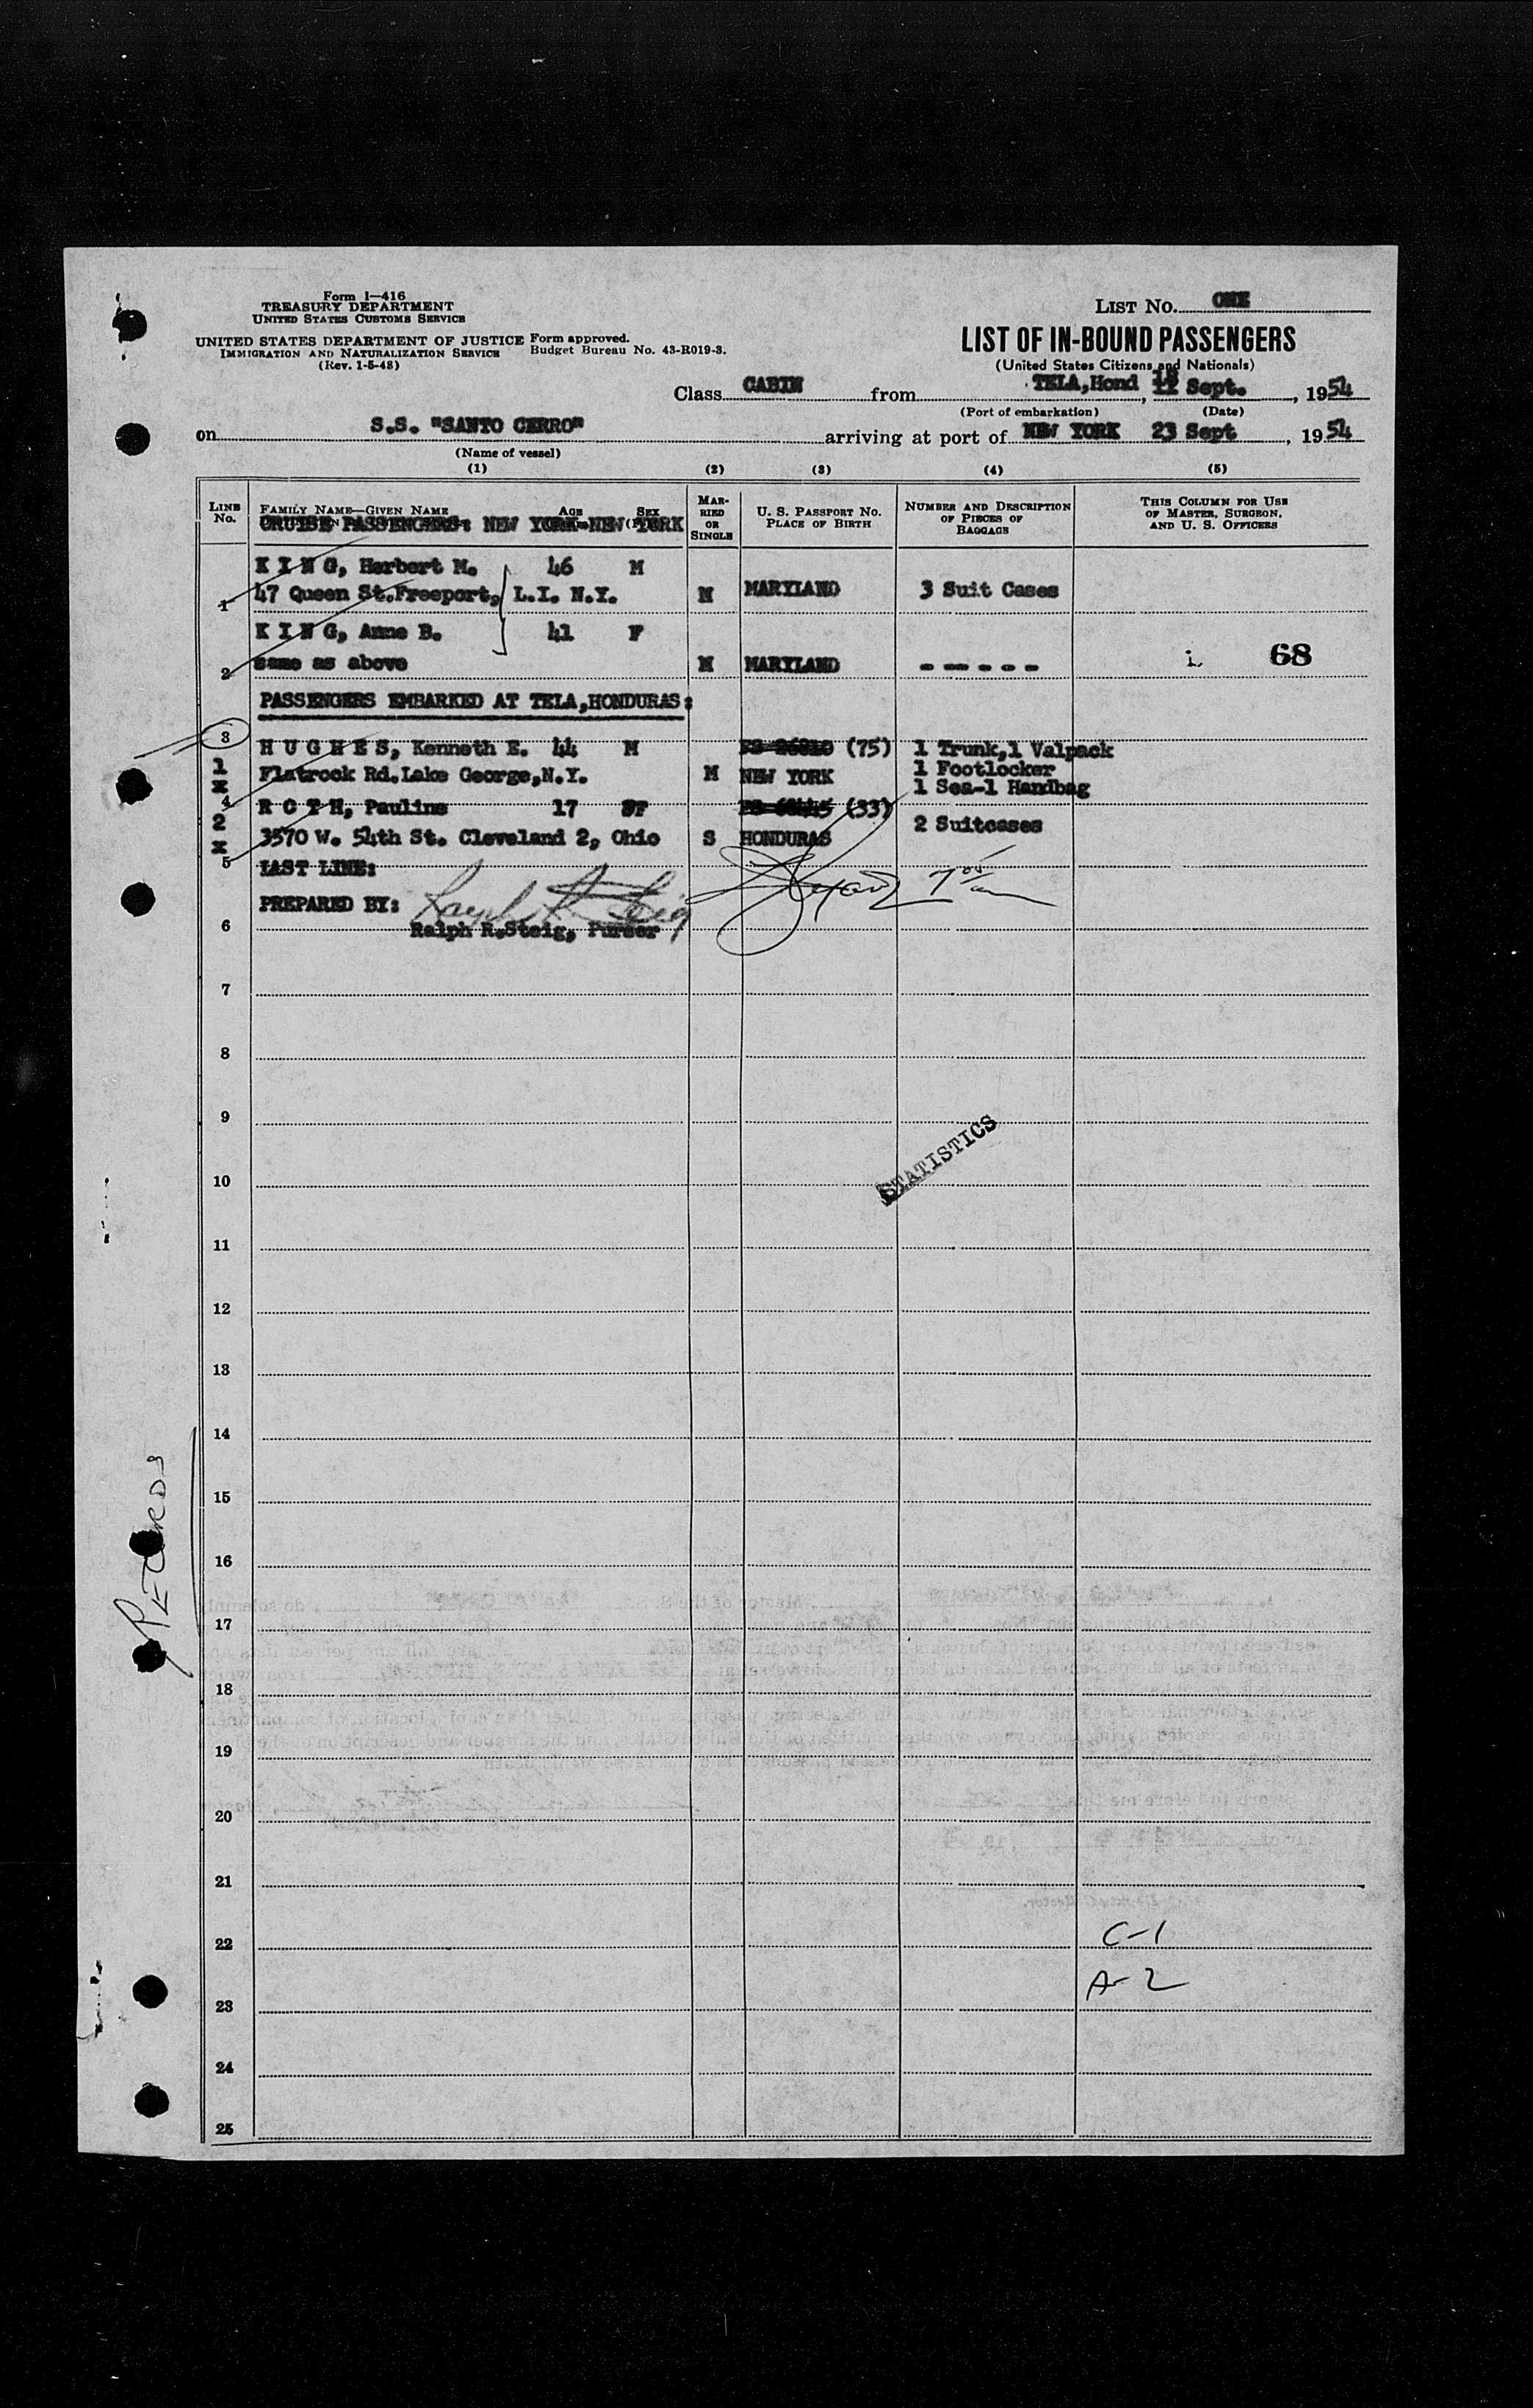 Form I-416
TREASURY DEPARTMENT
UNITED STATES CUSTOMS SERVICE
UNITED STATES DEPARTMENT OF JUSTICE
IMMIGRATION AND NATURALIZATION SERVICE
(Rev. 1-5-48)
Form approved.
Budget Bureau No. 43-R019-3.
LIST No. ONE
LIST OF IN-BOUND PASSENGERS
(United States Citizens and Nationals)
Class CABIN from TELA,Hond Sept., 1954
(Port of embarkation) (Date)
on S.S. "SANTO CERRO" arriving at port of NEW YORK 23 Sept, 1954
(Name of vessel)
(1) (2) (3) (4) (5)
LINE No. FAMILY NAME—GIVEN NAME AGE SEX MARRIED OR SINGLE U. S. PASSPORT No. PLACE OF BIRTH NUMBER AND DESCRIPTION OF PIECES OF BAGGAGE THIS COLUMN FOR USE OF MASTER, SURGEON, AND U. S. OFFICERS
CRUISE PASSENGERS: NEW YORK-NEW YORK
K I N G, Herbert M. 46 M
1 47 Queen St.Freeport, L.I. N.Y. M MARYLAND 3 Suit Cases
K I N G, Anne B. 41 F
2 same as above M MARYLAND - - - - - 68
PASSENGERS EMBARKED AT TELA,HONDURAS:
3 H U G H E S, Kenneth E. 44 M (75) 1 Trunk,1 Valpack
1 x Flatrock Rd.Lake George,N.Y. M NEW YORK 1 Footlocker
1 Sea-1 Handbag
4 R O T H, Pauline 17 F (33)
2 x 3570 W. 54th St. Cleveland 2, Ohio S HONDURAS 2 Suitcases
5 LAST LINE:
PREPARED BY: Ralph R. Steig
6 Ralph R.Steig, Purser
7
8
9
STATISTICS
10
11
12
13
14
15
16
17
18
19
20
21
22 C-1
23 A-2
24
25
RECORDS